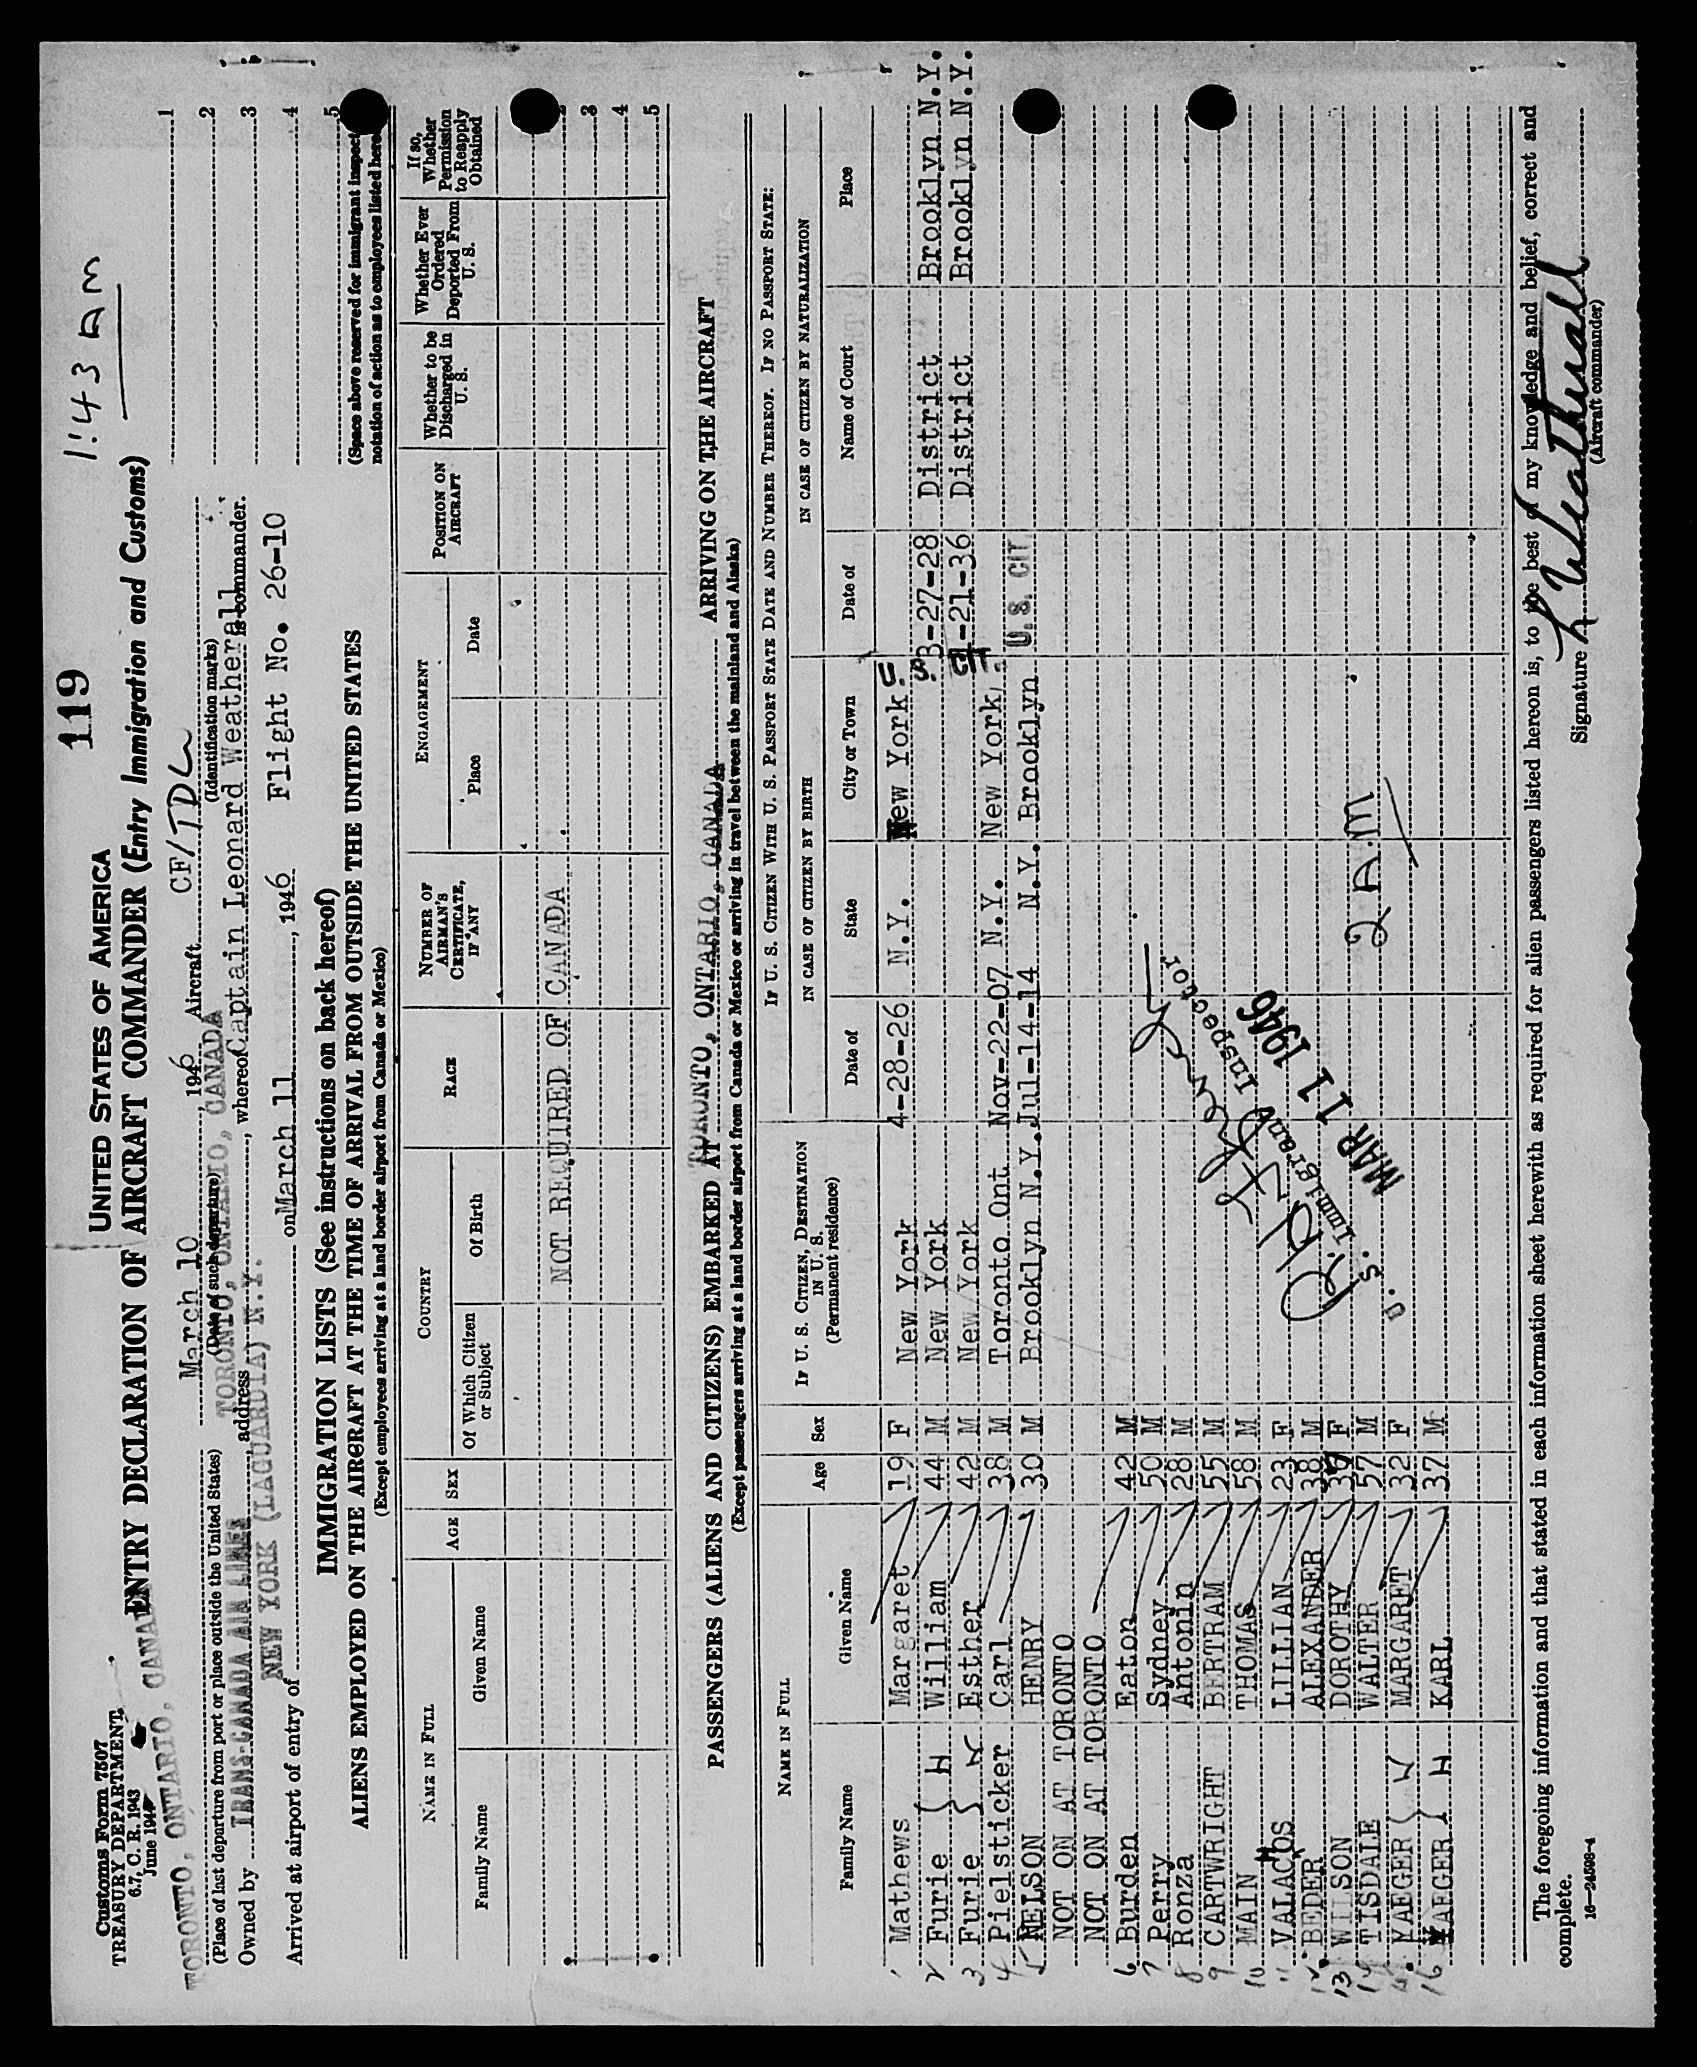 119
1:43 AM
Customs Form 7507
TREASURY DEPARTMENT
6.7, C. R. 1943
June 1944
UNITED STATES OF AMERICA
ENTRY DECLARATION OF AIRCRAFT COMMANDER (Entry Immigration and Customs)
TORONTO, ONTARIO, CANADA March 10, 1946 Aircraft CF/TDL
(Place of last departure from port or place outside the United States) (Date of such departure) (Identification marks)
TORONTO, ONTARIO, CANADA
Owned by TRANS-CANADA AIR LINES, address, whereof Captain Leonard Weatherall is commander.
NEW YORK (LAGUARDIA) N.Y.
Arrived at airport of entry of on March 11, 1946 Flight No. 26-10
1
2
3
4
5
(Space above reserved for immigrant inspector
notation of action as to employees listed here
IMMIGRATION LISTS (See instructions on back hereof)
ALIENS EMPLOYED ON THE AIRCRAFT AT THE TIME OF ARRIVAL FROM OUTSIDE THE UNITED STATES
(Except employees arriving at a land border airport from Canada or Mexico)
NAME IN FULL
Family Name Given Name
AGE
SEX
COUNTRY
Of Which Citizen or Subject
Of Birth
RACE
NUMBER OF AIRMAN'S CERTIFICATE, IF ANY
ENGAGEMENT
Place Date
POSITION ON AIRCRAFT
Whether to be Discharged in U. S.
Whether Ever Ordered Deported From U. S.
If so, Whether Permission to Reapply Obtained
NOT REQUIRED OF CANADA
2
3
4
5
PASSENGERS (ALIENS AND CITIZENS) EMBARKED AT TORONTO, ONTARIO, CANADA ARRIVING ON THE AIRCRAFT
(Except passengers arriving at a land border airport from Canada or Mexico or arriving in travel between the mainland and Alaska)
NAME IN FULL
Family Name Given Name
Age
Sex
IF U. S. CITIZEN, DESTINATION IN U. S.
(Permanent residence)
IF U. S. CITIZEN WITH U. S. PASSPORT STATE DATE AND NUMBER THEREOF. IF NO PASSPORT STATE:
IN CASE OF CITIZEN BY BIRTH
Date of State City or Town
IN CASE OF CITIZEN BY NATURALIZATION
Date of Name of Court Place
1 Mathews Margaret 19 F New York 4-28-26 N.Y. New York U.
2 Furie H William 44 M New York S. 3-27-28 District Brooklyn N.Y.
3 Furie W Esther 42 M New York CIT -21-36 District Brooklyn N.Y.
4 Pielsticker Carl 38 M Toronto Ont. Nov-22-07 N.Y. New York
5 NELSON HENRY 30 M Brooklyn N.Y. Jul-14-14 N.Y. Brooklyn U.S. CIT
NOT ON AT TORONTO
NOT ON AT TORONTO
6 Burden Eaton 42 M
7 Perry Sydney 50 M
8 Ronza Antonin 28 M
9 CARTWRIGHT BERTRAM 55 M
10 MAIN THOMAS 58 M
11 VALACHOS LILLIAN 23 F
12 BEDER ALEXANDER 38 M
13 WILSON DOROTHY F
14 TISDALE WALTER 57 M
YAEGER W MARGARET 32 F
16 YAEGER H KARL 37 M
U. S. Immigrant Inspector
MAR 11 1946
2 A.M
The foregoing information and that stated in each information sheet herewith as required for alien passengers listed hereon is, to the best of my knowledge and belief, correct and
complete.
Signature L Weatherall
(Aircraft commander)
16-24598-4